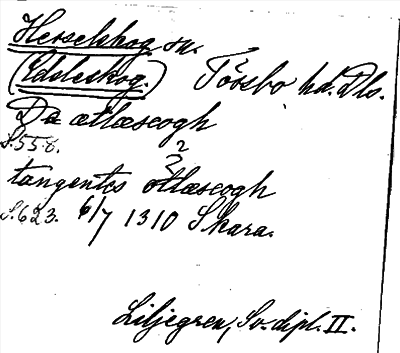 Herrelskog sn.
(Edsleskog.) Tössbo hd. Dls.
Da ætlæscogh
S. 558.
2
2
tangentes ötlæscogh
S. 623. 6/7 1310 Skara.
Liljegren, Sv. dipl. II.